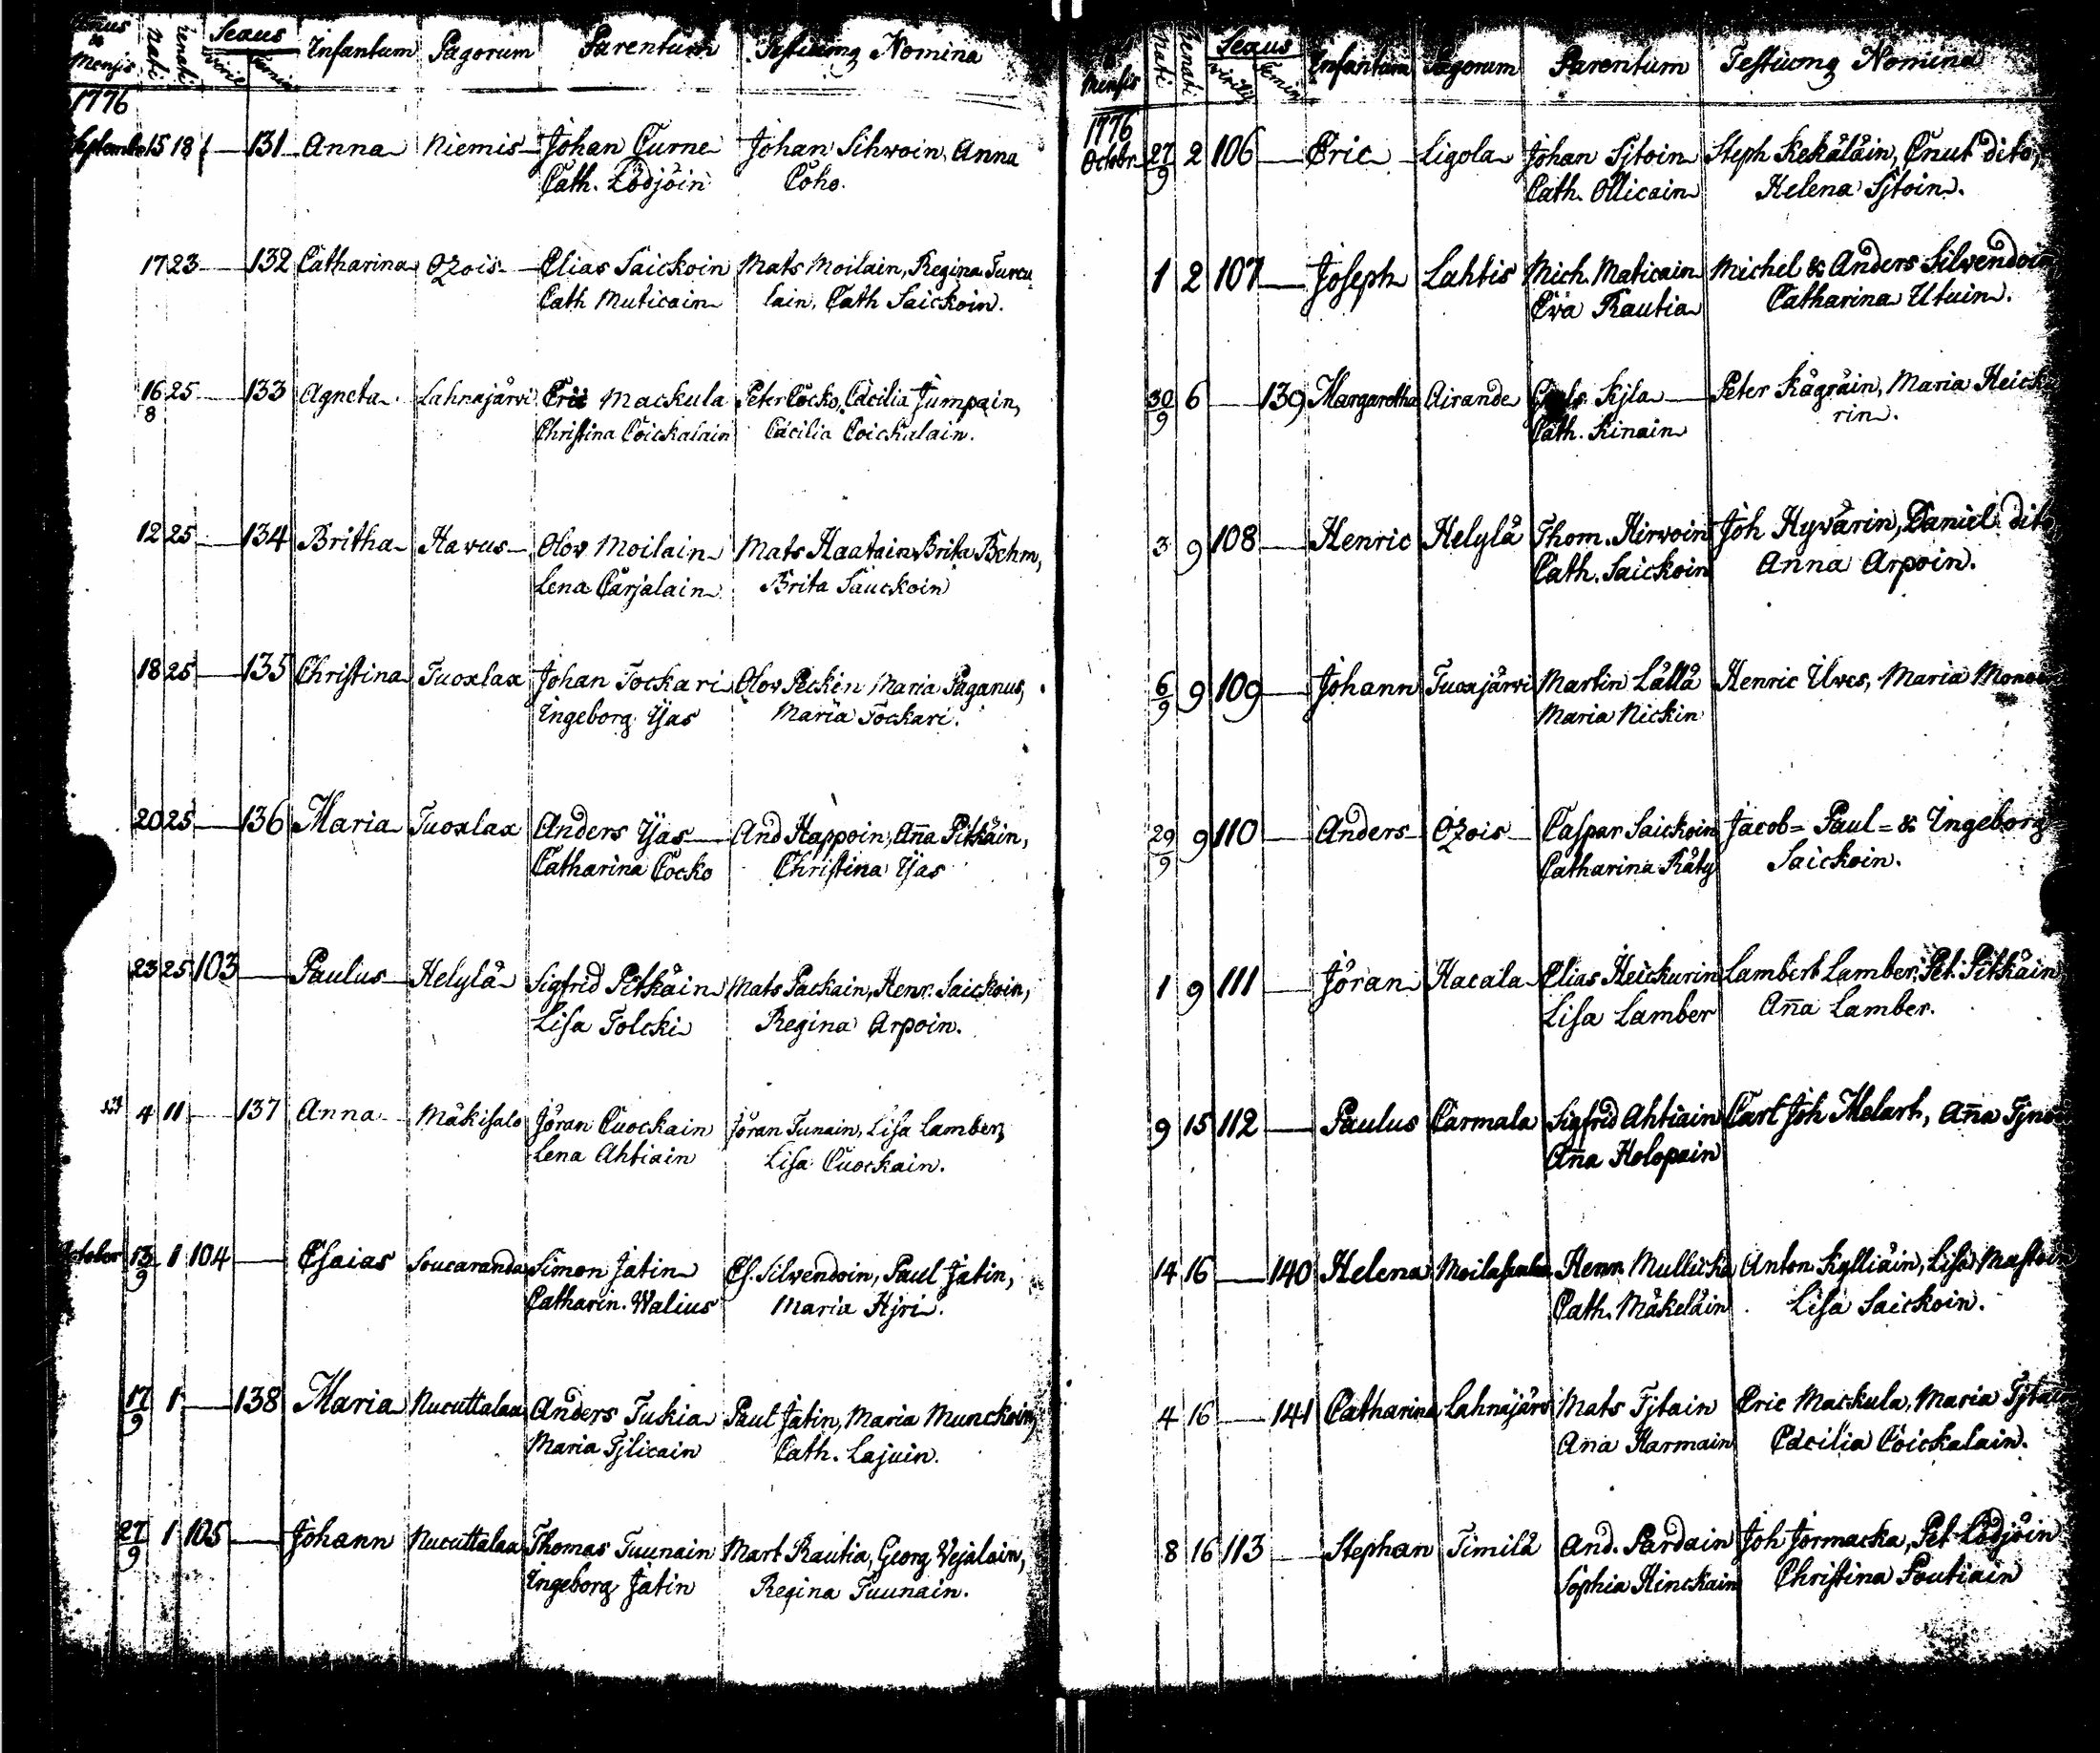 Mensis Nati Renati Sexus Infantum Pagorum Parentum Testiumq Nomina
Viril Femin
1776
September 15 18 — 131 Anna Niemis Johan Curne Johan Sihvoin, Anna
Cath. Lödjöin Coho.
17 23 — 132 Catharina Ozois Elias Saickoin Mats Moilain, Regina Turcu
Cath Muticain lain, Cath Saickoin.
16/8 25 — 133 Agneta Lahnajärvi Eric Mackula Peter Cocko, Cäcilia Jumpain,
Christina Coickalain Cäcilia Coickalain.
12 25 — 134 Britha Havus Olov Moilain Mats Haatain, Brita Behm,
Lena Carjalain Brita Sauckoin
18 25 — 135 Christina Tuoxlax Johan Tockari Olov Peckin Maria Paganus,
Ingeborg Yjas Maria Tockari.
20 25 — 136 Maria Tuoxlax Anders Yjas And Happoin, Ana Pitkäin,
Catharina Cocko Christina Yjas
23 25 103 — Paulus Helylä Sigfrid Pitkäin Mats Packain, Henr. Saickoin,
Lisa Tolcki Regina Arpoin.
4 11 — 137 Anna Mäkisalo Jöran Cuockain Jöran Tunain, Lisa Lamber,
Lena Ahtiain Lisa Cuockain.
October 13/9 1 104 — Esaias Soucaranda Simon Jatin Es. Silvendoin, Paul Jatin,
Catharin. Walius Maria Hjri.
17/9 1 — 138 Maria Nucuttalax Anders Tukia Paul Jatin, Maria Munckoin,
Maria Tjlicain Cath. Lajuin.
27/9 1 105 — Johann Nucuttalax Thomas Tuunain Mart Rautia, Georg Vejalain,
Ingeborg Jatin Regina Tuunain.
Mensis Nati Renati Sexus Infantum Pagorum Parentum Testiumq Nomina
Virily Femin
1776
Octobr. 27/9 2 106 — Eric Ligola Johan Sjtoin Steph Kekäläin, Cnut dito,
Cath. Ollicain Helena Sjtoin.
1 2 107 — Joseph Lahtis Mich. Maticain Michel & Anders Silvendoin
Eva Rautia Catharina Utuin.
30/9 6 — 139 Margaretha Airande Kjla Peter Kägräin, Maria Heicku
Cath. Kinain rin.
3 9 108 — Henric Helylä Thom. Hirvoin Joh Hyvärin, Daniel dito
Cath. Saickoin Anna Arpoin.
6/9 9 109 — Johann Tuoxjärvi Martin Lällä Henric Ilves, Maria Monoin
Maria Nickin
29/9 9 110 — Anders Ozois Caspar Saickoin Jacob= Paul= & Ingeborg
Catharina Räty Saickoin.
1 9 111 — Jöran Hacala Elias Heickurin Lambert Lamber, Pet. Pitkäin
Lisa Lamber Ana Lamber.
9 15 112 — Paulus Carmala Sigfrid Ahtiain Carl Joh Melart, Ana
Ana Holopain
14 16 — 140 Helena Henr Mullicka Anton Kylliäin, Lisa
Cath. Mäkeläin Lisa Saickoin.
4 16 — 141 Catharina Lahnajärv Mats Tjtain Eric Mackula, Maria Tjtain
Ana Harmain Cäcilia Coickalain.
8 16 113 — Stephan Timilä And. Pardain Joh Jormacka, Pet Lödjöin
Sophia Hinckain Christina Poutiain